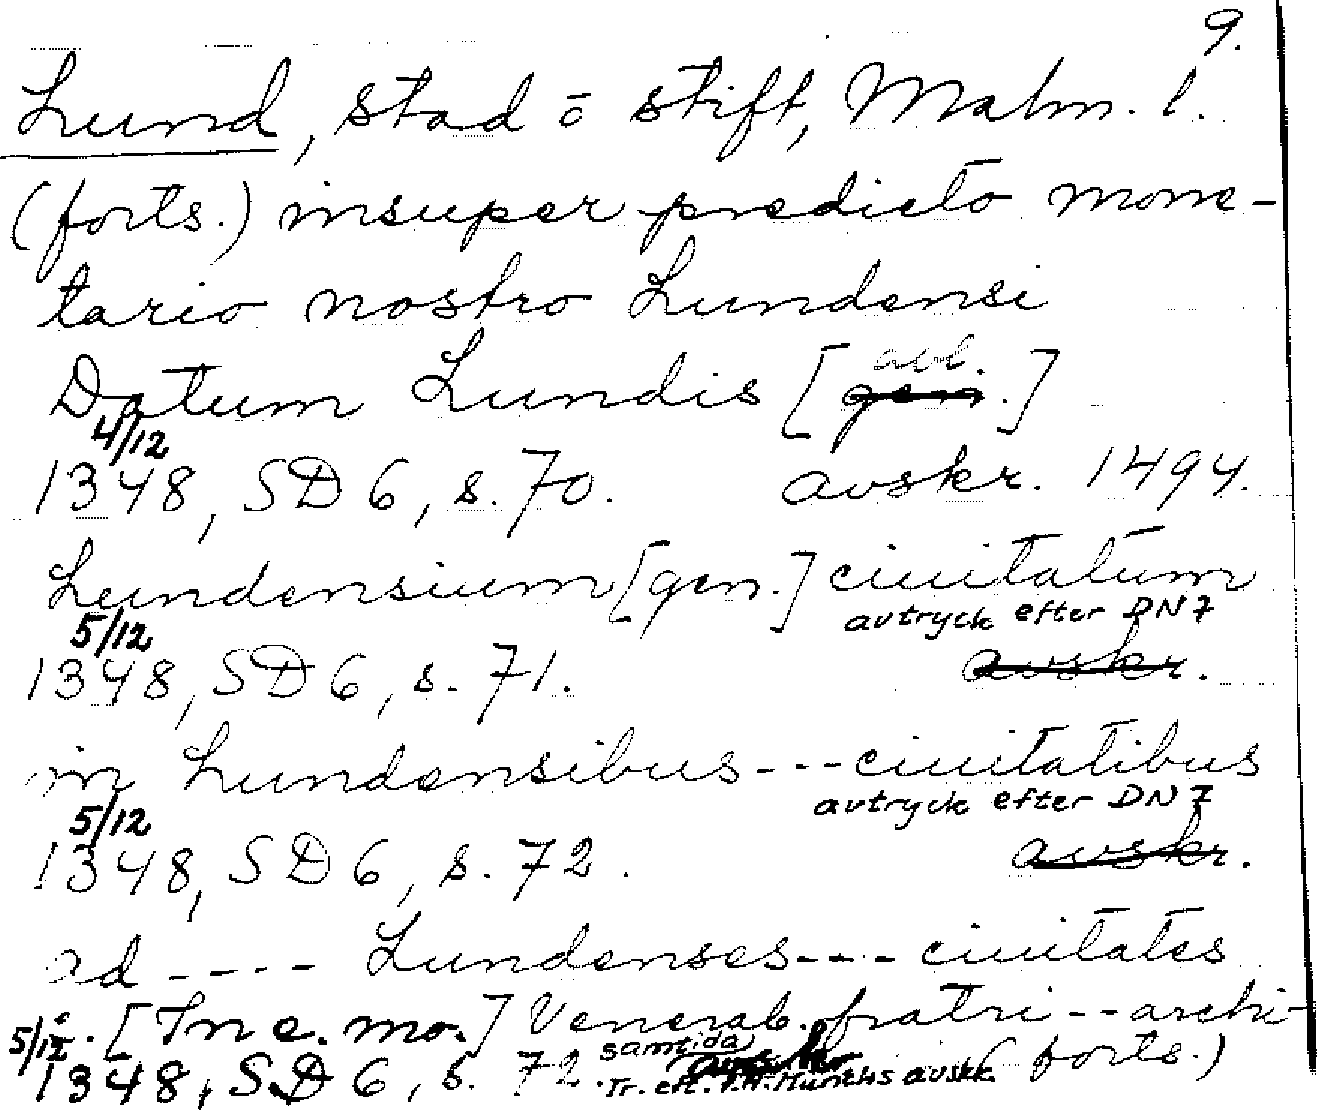 9.
Lund, stad o stift, Malm. l.
(forts.) insuper predicto mone-
tario nostro Lundensi
Datum Lundis [gen.]
abl.
4/12
1348, SD 6, s. 70. avskr. 1494.
Lundensium [gen.] ciuitatum
5/12 avtryck efter DN 7
1348, SD 6, s. 71. avskr.
in Lundensibus --- ciuitatibus
5/12 avtryck efter DN 7
1348, SD 6, s. 72. avskr.
ad ---- Lundenses --- ciuitates
[In e. mo.] Venerab. fratri -- archi-
5/12 samtida
1348, SD 6, s. 72. (forts.)
Tr. eft. Munchs avskr.